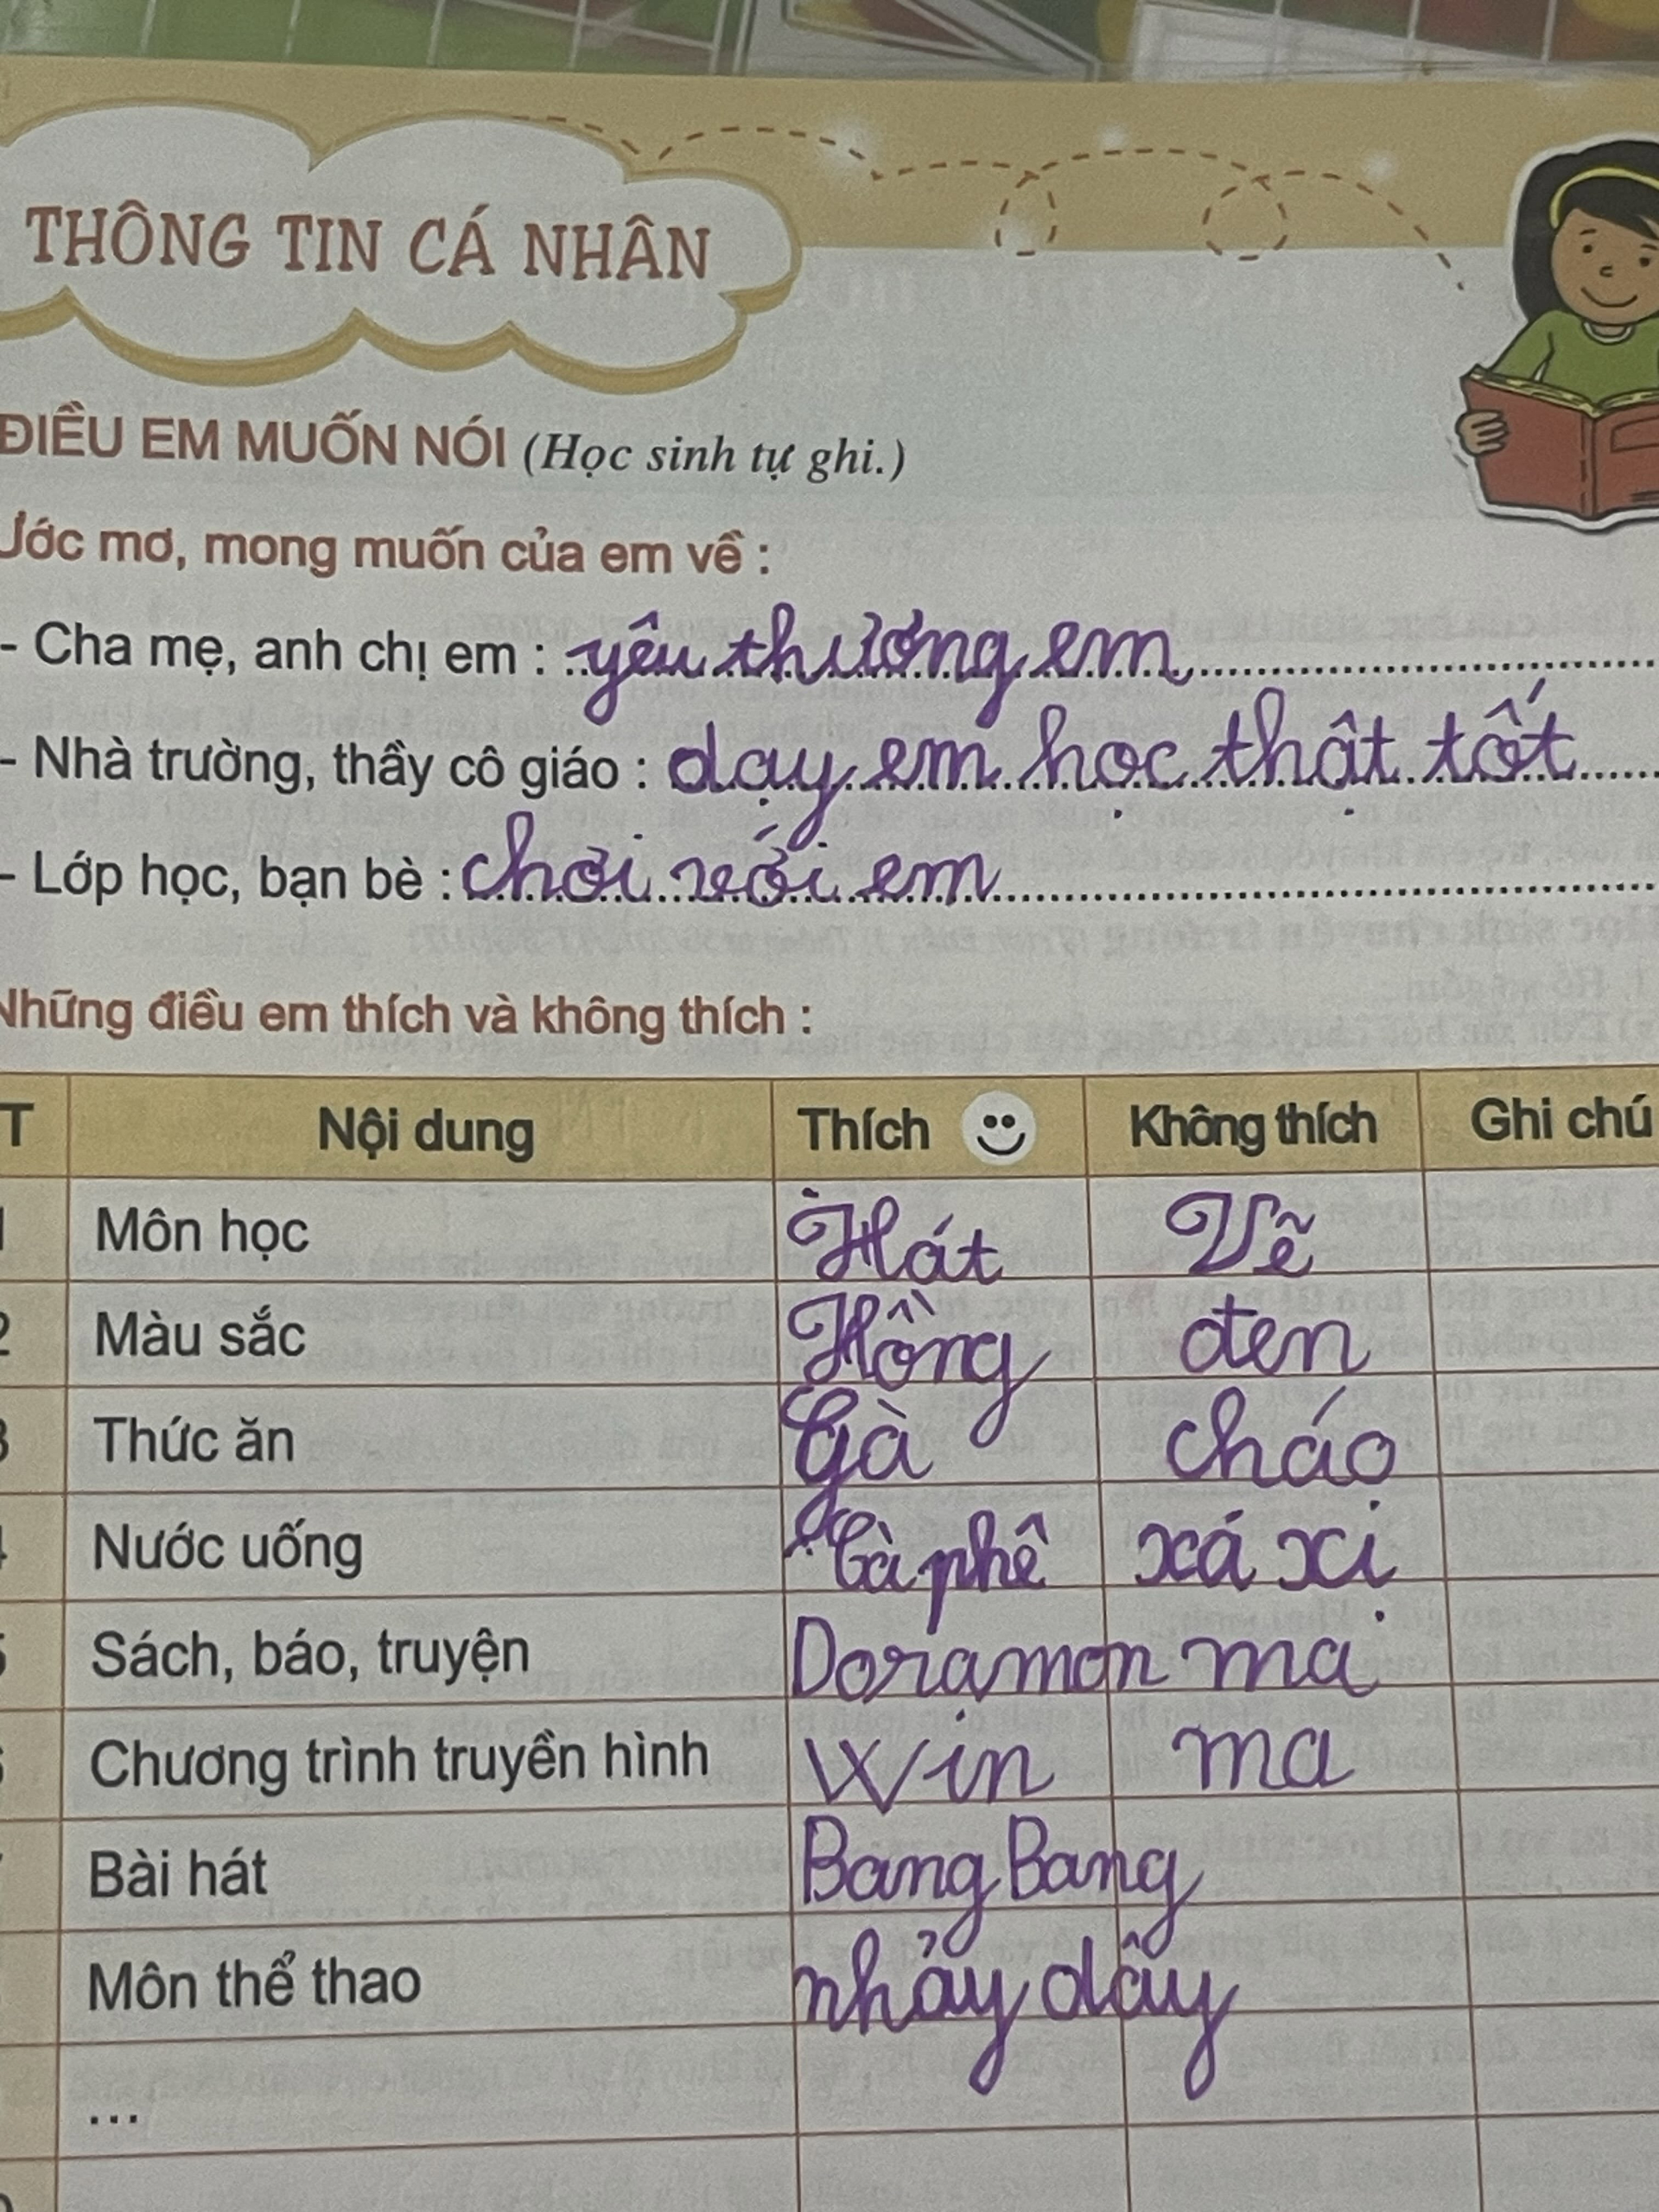 THÔNG TIN CÁ NHÂN
ĐIỀU EM MUỐN NÓI (Học sinh tự ghi.)
Ước mơ, mong muốn của em về :
- Cha mẹ, anh chị em : yêu thương em
- Nhà trường, thầy cô giáo : dạy em học thật tốt
- Lớp học, bạn bè : chơi với em
Những điều em thích và không thích :
T Nội dung Thích Không thích Ghi chú
1 Môn học Hát Vẽ
2 Màu sắc Hồng đen
3 Thức ăn Gà cháo
4 Nước uống Cà phê xá xị
5 Sách, báo, truyện Doramon ma
6 Chương trình truyền hình Win ma
Bài hát Bang Bang
Môn thể thao nhảy dây
...